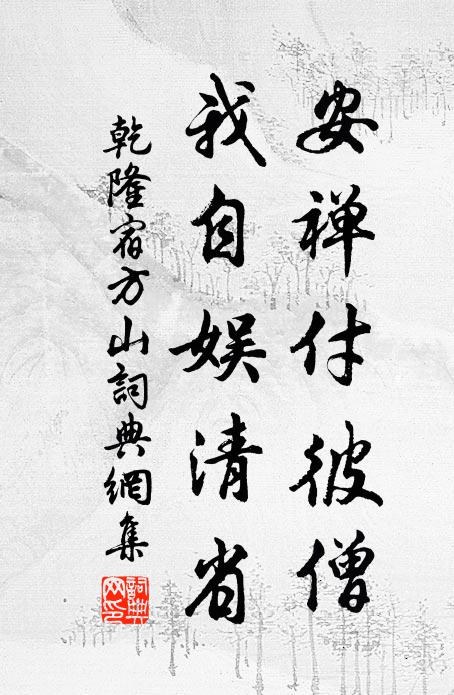 安禅付彼僧
我自娱清省
乾隆宿方山詞典網集
詞典网印